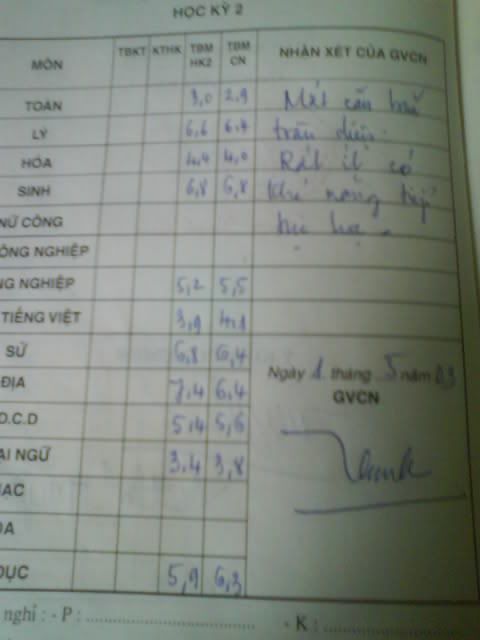 HỌC KỲ 2
MÔN TBKT KTHK TBM HK2 TBM CN NHẬN XÉT CỦA GVCN
TOÁN 3,0 2,9 Mất căn bản
LÝ 6,6 6,4 trầm diện.
HÓA 4,4 4,0 Rất ít có
SINH 6,8 6,8 khả năng tiếp
NỮ CÔNG tục học.
ÔNG NGHIỆP
NG NGHIỆP 5,2 5,5
TIẾNG VIỆT 3,9 4,1
SỬ 6,8 6,4
ĐỊA 7,4 6,4
Ngày 1 tháng 5 năm 03
GVCN
D.C.D 5,4 5,6
ẠI NGỮ 3,4 3,8
HẠC
ỌA
DỤC 5,9 6,3
nghỉ : - P : - K :